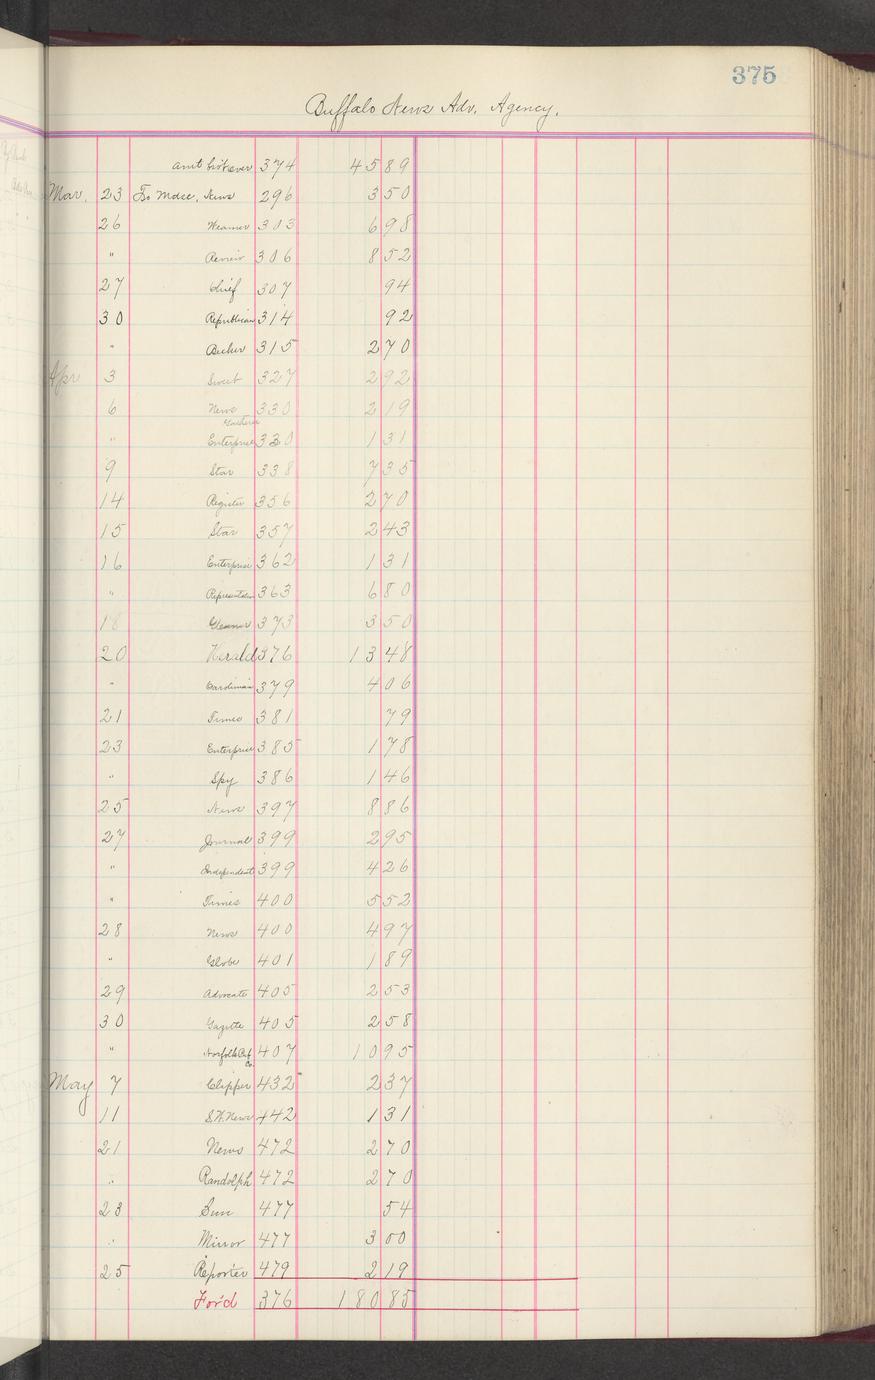 375
Buffalo News Adv. Agency.
amt brot over 374 45 89
Mar. 23 To Mdse. News 296 3 50
26 Weamer 303 6 98
" Review 306 8 52
27 Chief 307 94
30 Republican 314 92
" Becher 315 2 70
Apr 3 Sweet 327 2 92
6 News 330 2 19
" Enterprise 330 1 31
9 Star 338 7 35
14 Register 356 2 70
15 Star 357 2 43
16 Enterprise 362 1 31
" 363 6 80
18 Gleaner 373 3 50
20 Herald 376 13 48
" 379 4 06
21 Times 381 79
23 Enterprise 385 1 78
" Spy 386 1 46
25 News 397 8 86
27 Journal 399 2 95
" Independent 399 4 26
" Times 400 5 52
28 News 400 4 97
" Globe 401 1 89
29 Advocate 405 2 53
30 Gazette 405 2 58
" Norfolk Pub Co. 407 10 95
May 7 Clipper 432 2 37
11 S.W. News 442 1 31
21 News 472 2 70
" Randolph 472 2 70
23 Sun 477 54
" Mirror 477 3 00
25 Reporter 479 2 19
For'd 376 180 85